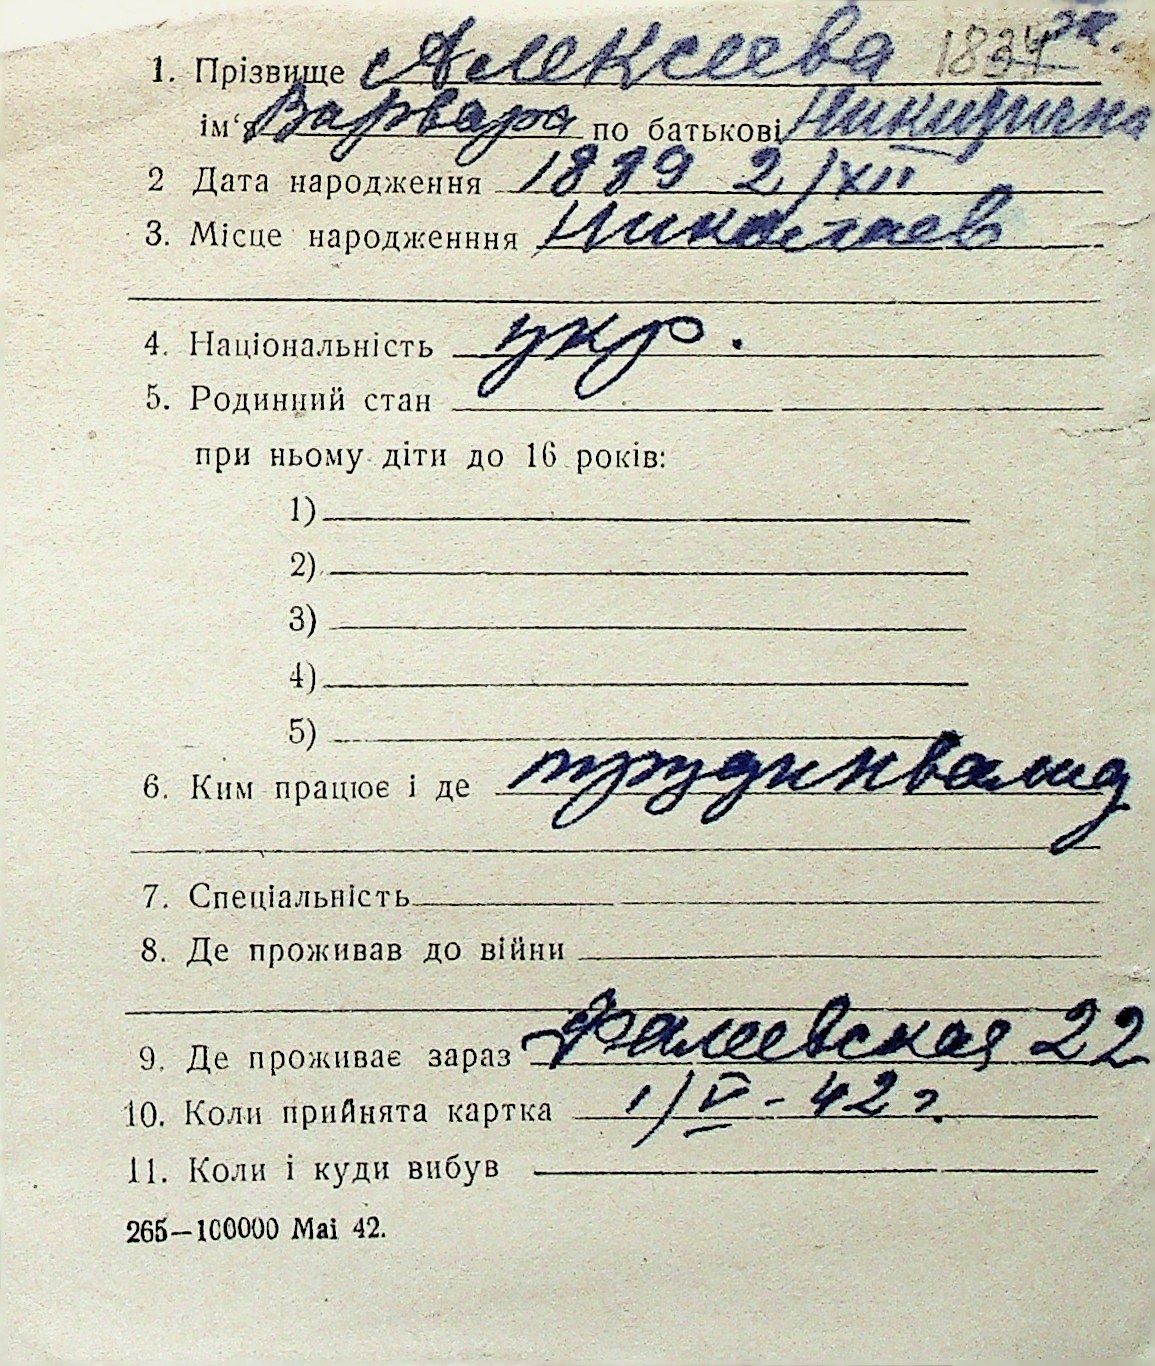 1. Прізвище Алексеева 1834 эк.
ім'я Варвара по батькові Никидична
2 Дата народження 1889 2/XII
3. Місце народженння Николаев
4. Національність укр.
5. Родинний стан
при ньому діти до 16 років:
1)
2)
3)
4)
5)
6. Ким працює і де трудинвалид
7. Спеціальність
8. Де проживав до війни
9. Де проживає зараз Фалеевская 22
10. Коли прийнята картка 1/V-42 г.
11. Коли і куди вибув
265—100000 Mai 42.